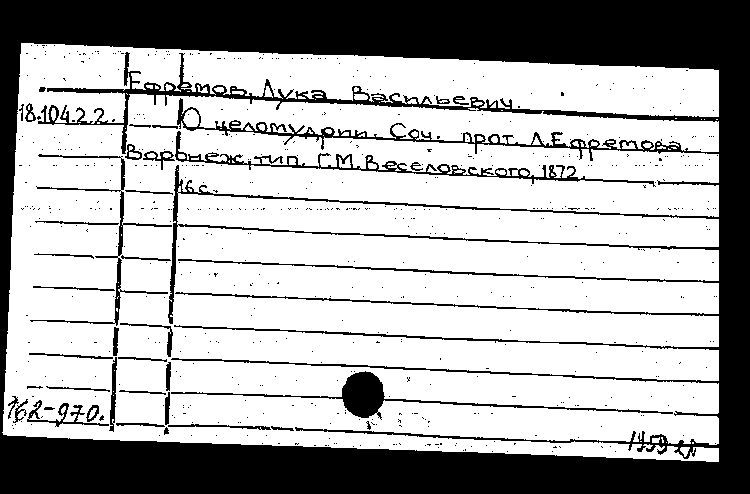 Ефремов, Лука Васильевич.
18.104.2.2. О целомудрии. Соч. прот. Л.Ефремова.
Воронеж, тип. Г.М.Веселовского, 1872.
16 с.
162-970.
1959